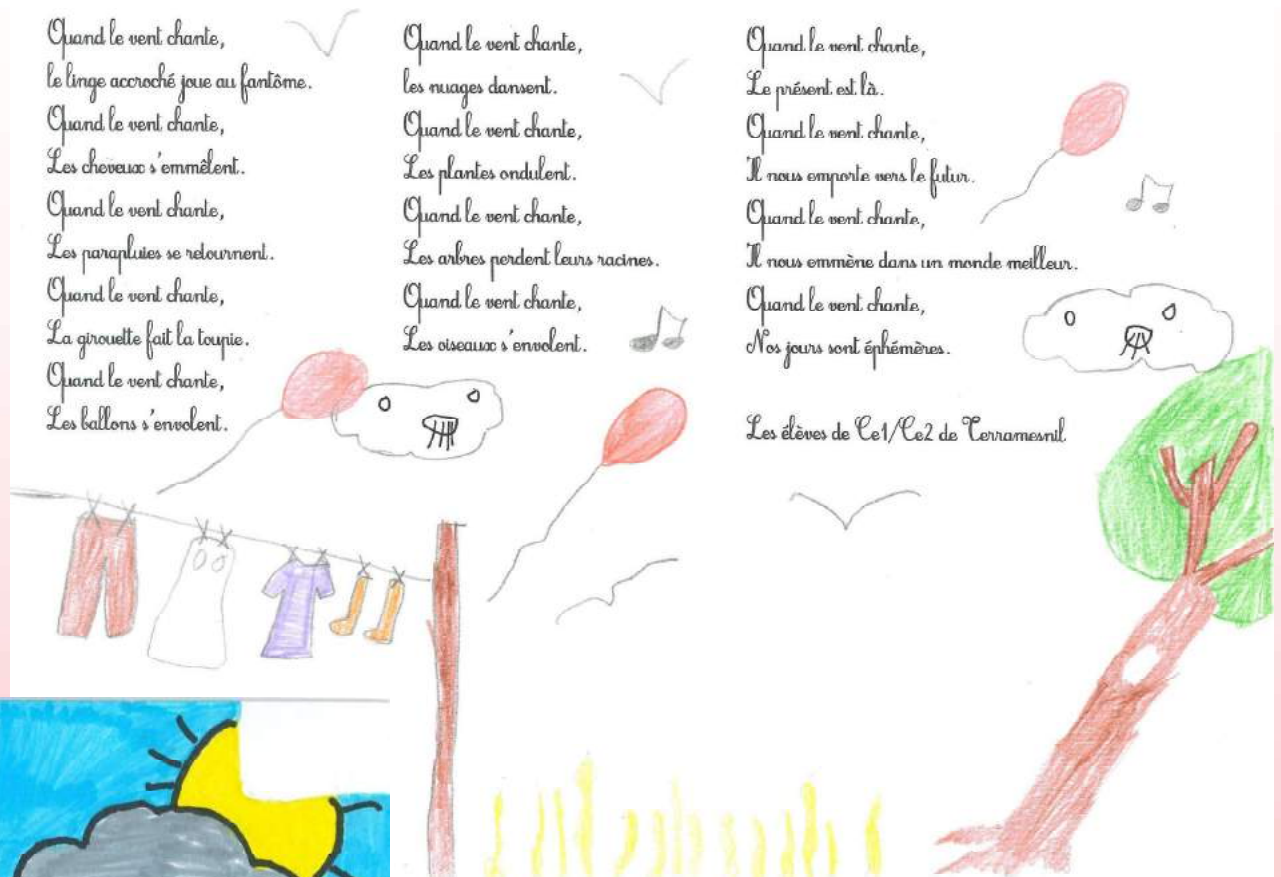 Quand le vent chante,
le linge accroché joue au fantôme.
Quand le vent chante,
Les cheveux s'emmêlent.
Quand le vent chante,
Les parapluies se retournent.
Quand le vent chante,
La girouette fait la toupie.
Quand le vent chante,
Les ballons s'envolent.
Quand le vent chante,
les nuages dansent.
Quand le vent chante,
Les plantes ondulent.
Quand le vent chante,
Les arbres perdent leurs racines.
Quand le vent chante,
Les oiseaux s'envolent.
Quand le vent chante,
Le présent est là.
Quand le vent chante,
Il nous emporte vers le futur.
Quand le vent chante,
Il nous emmène dans un monde meilleur.
Quand le vent chante,
Nos jours sont éphémères.
Les élèves de Ce1/Ce2 de Terramesnil